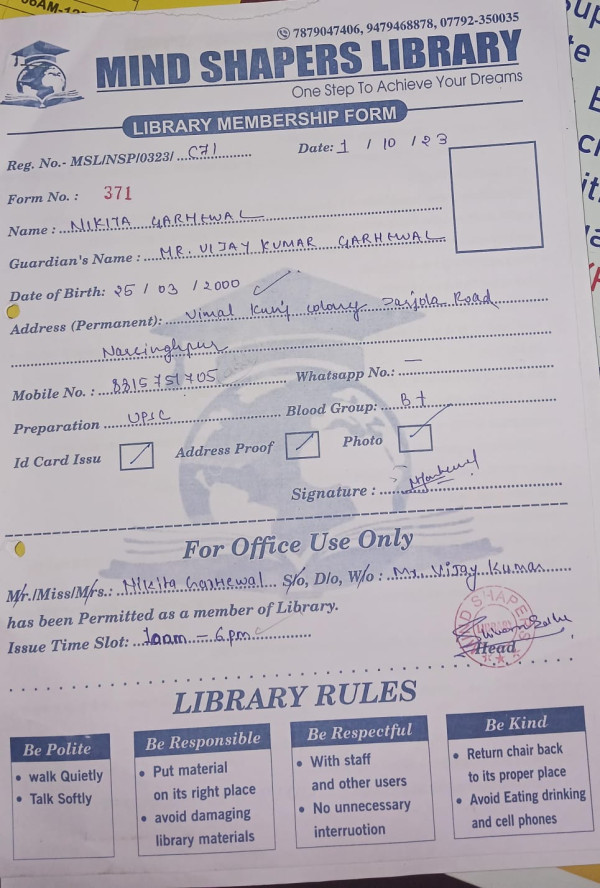 7879047406, 9479468878, 07792-350035
MIND SHAPERS LIBRARY
One Step To Achieve Your Dreams
LIBRARY MEMBERSHIP FORM
Reg. No.- MSL/NSP/0323/ C71 Date: 1 / 10 / 23
Form No. : 371
Name : NIKITA GARHEWAL
Guardian's Name : MR. VIJAY KUMAR GARHEWAL
Date of Birth: 25 / 03 / 2000
Address (Permanent): Vimal Kunj colony Road
Narsinghpur
Mobile No. : 8315751705 Whatsapp No.: —
Preparation UPSC Blood Group: B+
Id Card Issu Address Proof Photo
Signature :
For Office Use Only
Mr./Miss/Mrs.: Nikita Garhewal S/o, D/o, W/o : Mr. Vijay Kumar
has been Permitted as a member of Library.
Issue Time Slot: 10am - 6pm
Head
LIBRARY RULES
Be Polite
• walk Quietly
• Talk Softly
Be Responsible
• Put material
on its right place
• avoid damaging
library materials
Be Respectful
• With staff
and other users
• No unnecessary
interruotion
Be Kind
• Return chair back
to its proper place
• Avoid Eating drinking
and cell phones